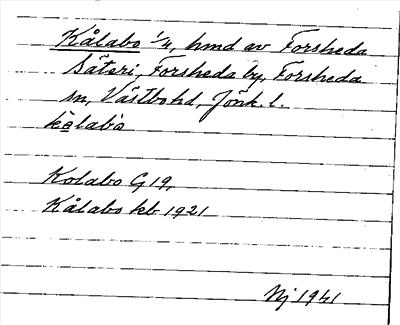 Kålabo 1/4, hmd av Forsheda
Säteri, Forsheda by, Forsheda
sn, Västbo hd, Jönk. l.
kålabo
Kolabo G 19,
Kålabo kb 1921
Nj 1941